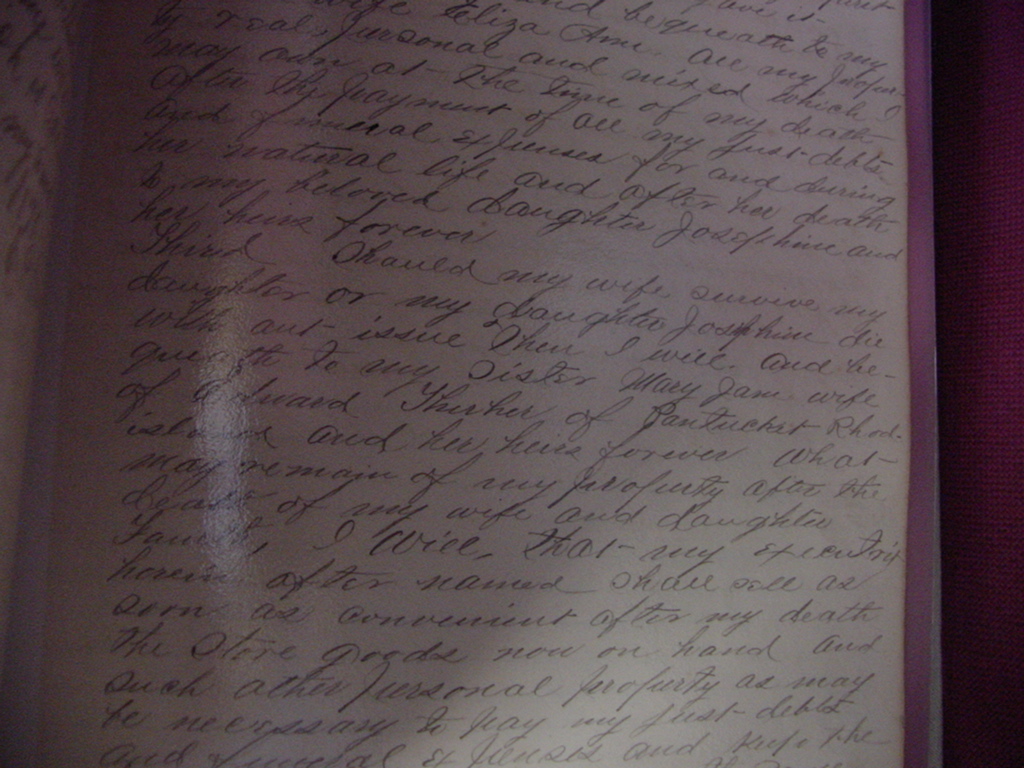 wife Eliza Ann and bequeath to my
all my proper-
ty real, personal and mixed which I
may own at the time of my death
after the payment of all my just debts
and funeral expenses for and during
her natural life and after her death
to my beloved daughter Josephine and
her heirs forever
Third Should my wife survive my
daughter or my daughter Josephine die
with out issue Then I will and be-
queath to my sister Mary Jane wife
of Edward Thurber of Pantucket Rhod-
island and her heirs forever what-
may remain of my property after the
death of my wife and daughter
I will, that my executrix
herein after named shall sell as
soon as convenient after my death
the Store goods now on hand and
such other personal property as may
be necessary to pay my just debts
and funeral expenses and keep the